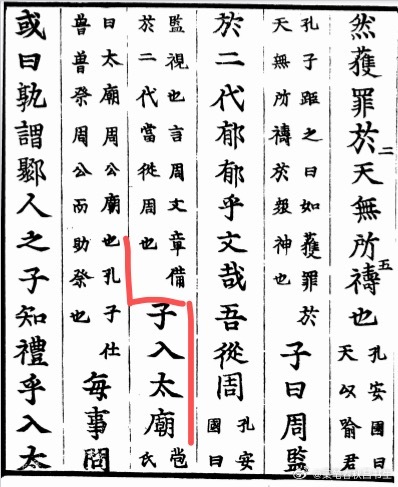 然獲罪於天無所禱也孔安國曰天以喻君
二
五
孔子距之曰如獲罪於天無所禱於衆神也子曰周監
於二代郁郁乎文哉吾從周孔安國曰
監視也言周文章備於二代當從周也子入太廟苞氏
曰太廟周公廟也孔子仕魯魯祭周公而助祭也每事問
或曰孰謂鄹人之子知禮乎入太